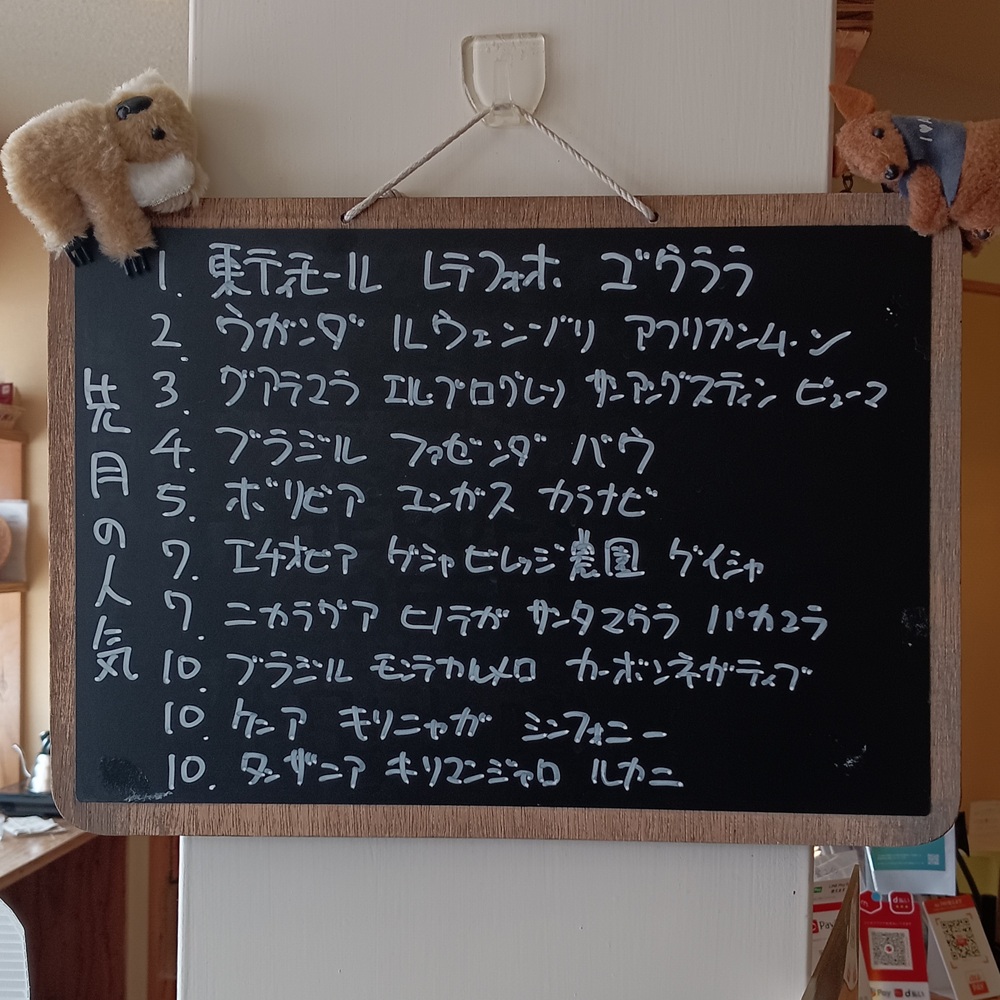 先月の人気
1. 東ティモール レテフォホ ゴウララ
2. ウガンダ ルウェンゾリ アフリカンムーン
3. グアテマラ エルプログレソ サンアグスティン ピューマ
4. ブラジル ファゼンダ バウ
5. ボリビア ユンガス カラナビ
7. エチオピア ゲシャビレッジ農園 ゲイシャ
7. ニカラグア ヒノテガ サンタマウラ パカマラ
10. ブラジル モンテカルメロ カーボンネガティブ
10. ケニア キリニャガ シンフォニー
10. タンザニア キリマンジャロ ルカニ